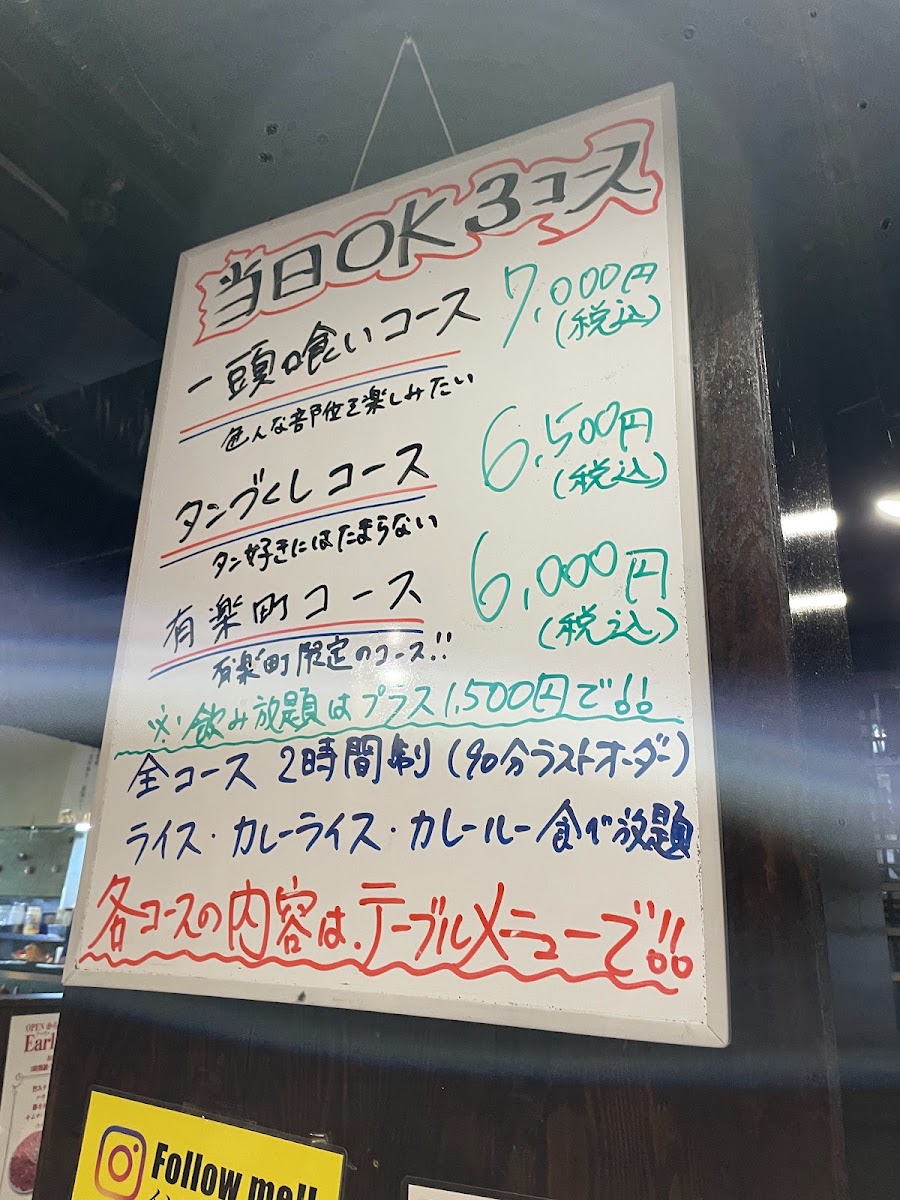 当日OK3コース
一頭喰いコース 7,000円
(税込)
色んな部位を楽しみたい
タンづくしコース 6,500円
(税込)
タン好きにはたまらない
有楽町コース 6,000円
(税込)
有楽町限定のコース!!
※飲み放題はプラス1,500円で!!
全コース 2時間制 (90分ラストオーダー)
ライス・カレーライス・カレールー食べ放題
各コースの内容は、テーブルメニューで!!
OPENから
Earl
Follow me!!